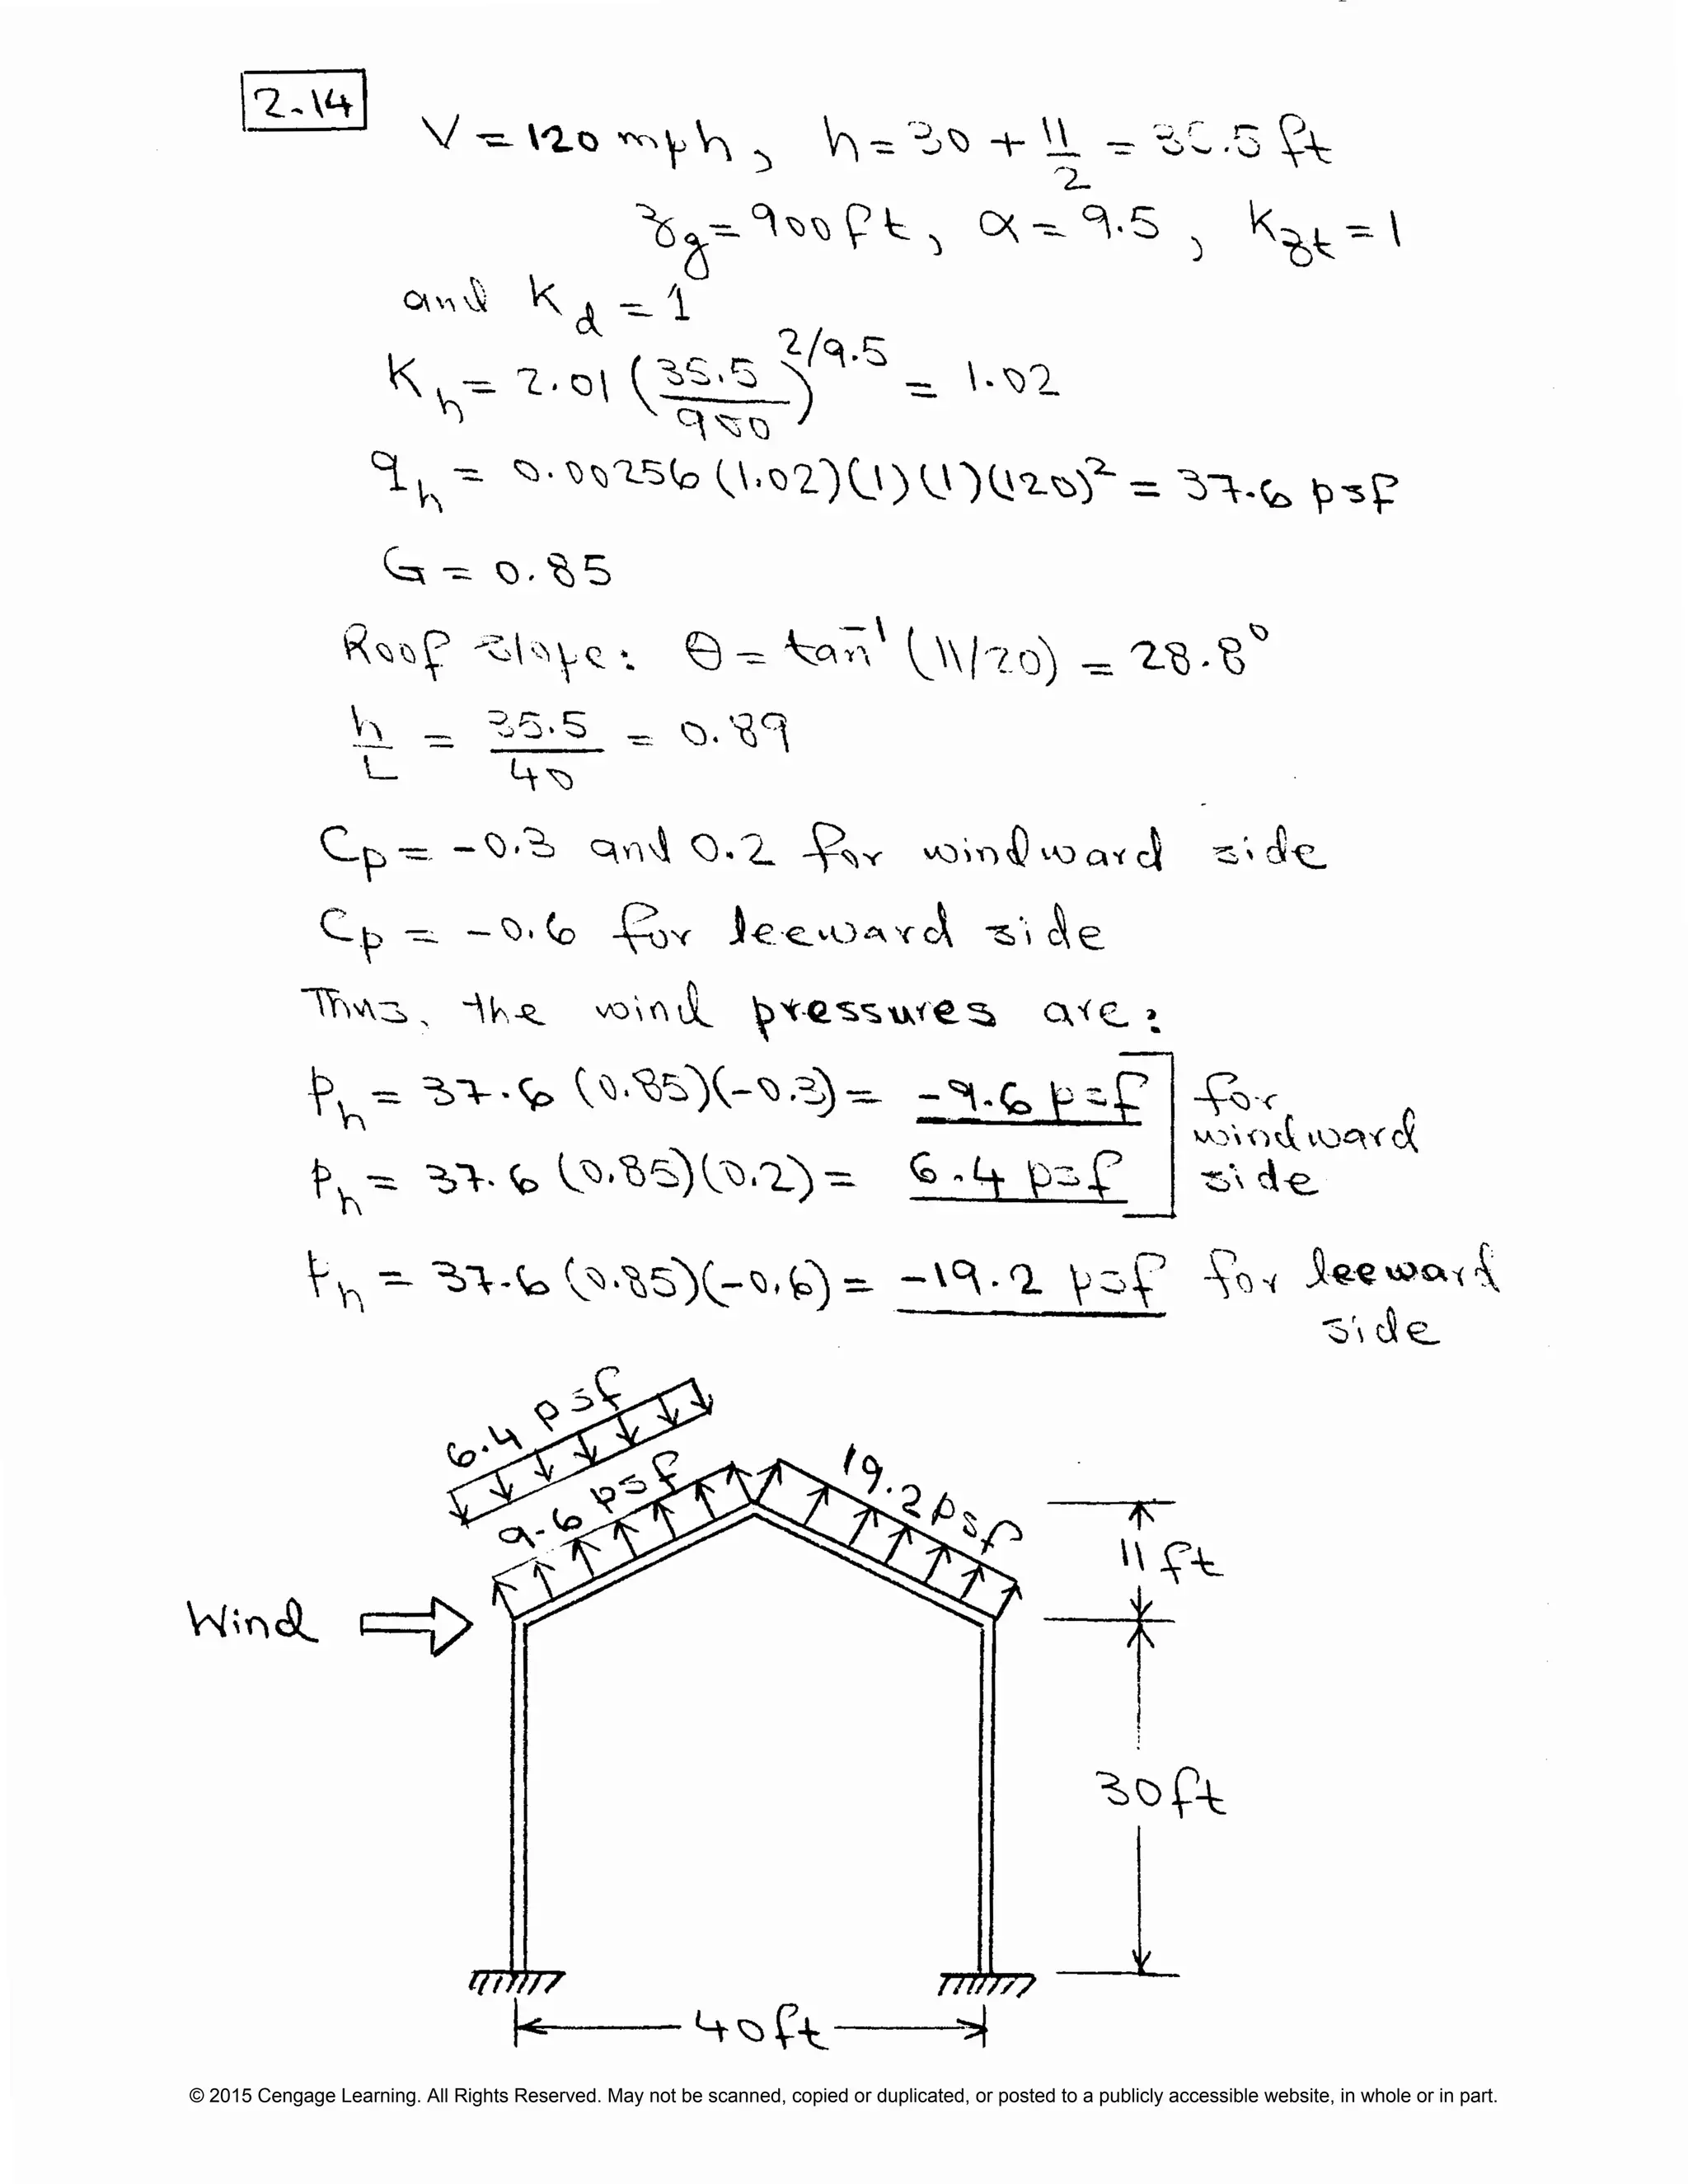 2.14
V = 120 mph, h = 30 + 11/2 = 35.5 ft
zg = 900 ft, α = 9.5, Kzt = 1
and Kd = 1
Kh = 2.01 (35.5/900)^2/9.5 = 1.02
qh = 0.00256 (1.02)(1)(1)(120)² = 37.6 psf
G = 0.85
Roof slope: θ = tan⁻¹ (11/20) = 28.8°
h/L = 35.5/40 = 0.89
Cp = -0.3 and 0.2 for windward side
Cp = -0.6 for leeward side
Thus, the wind pressures are:
Ph = 37.6 (0.85)(-0.3) = -9.6 psf
Ph = 37.6 (0.85)(0.2) = 6.4 psf
for windward side
Ph = 37.6 (0.85)(-0.6) = -19.2 psf for leeward
side
6.4 psf
9.6 psf
19.2 psf
11 ft
Wind
30 ft
40 ft
© 2015 Cengage Learning. All Rights Reserved. May not be scanned, copied or duplicated, or posted to a publicly accessible website, in whole or in part.